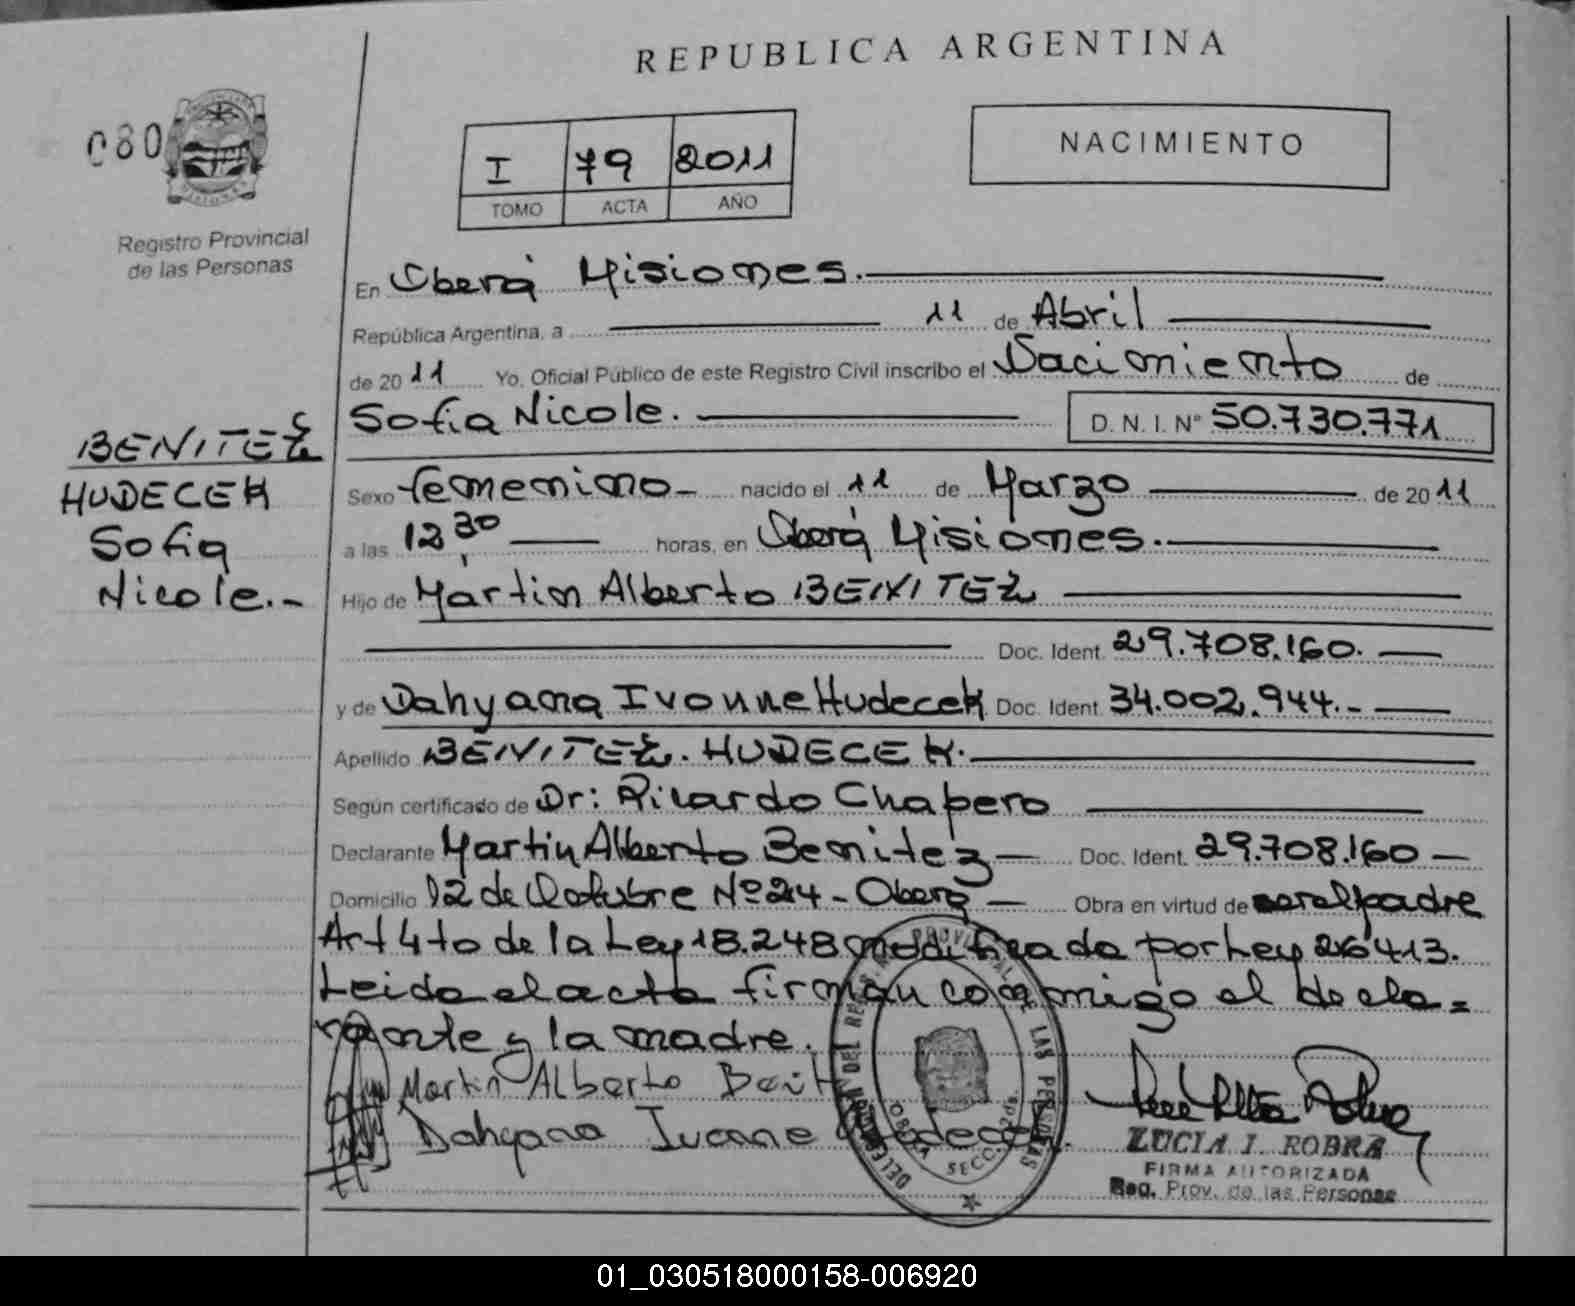 REPUBLICA ARGENTINA
080
I 79 2011
TOMO ACTA AÑO
NACIMIENTO
Registro Provincial
de las Personas
BENITEZ
HUDECEK
Sofia
Nicole.-
En Oberá Misiones.
República Argentina, a 11 de Abril
de 2011 Yo, Oficial Público de este Registro Civil inscribo el Nacimiento de
Sofia Nicole. D. N. I. N° 50.730.771
Sexo femenino- nacido el 11 de Marzo de 2011
a las 12,30 horas, en Oberá Misiones.
Hijo de Martin Alberto BENITEZ
Doc. Ident. 29.708.160.
y de Dahyana Ivonne Hudecek Doc. Ident. 34.002.944.-
Apellido BENITEZ. HUDECEK.
Según certificado de Dr: Ricardo Chapero
Declarante Martin Alberto Benitez Doc. Ident. 29.708.160
Domicilio 12 de Octubre Nº 214 - Oberá Obra en virtud de ser el padre
Art 4to de la Ley 18.248 modificada por Ley 26413.
Leida el acta firman conmigo el decla=
rante y la madre.
Martin Alberto
Dahyana Ivonne
PROVINCIAL DE LAS PERSONAS
OBERA SECC. 2da.
LUCIA I. ROBRA
FIRMA AUTORIZADA
Reg. Prov. de las Personas
01_030518000158-006920